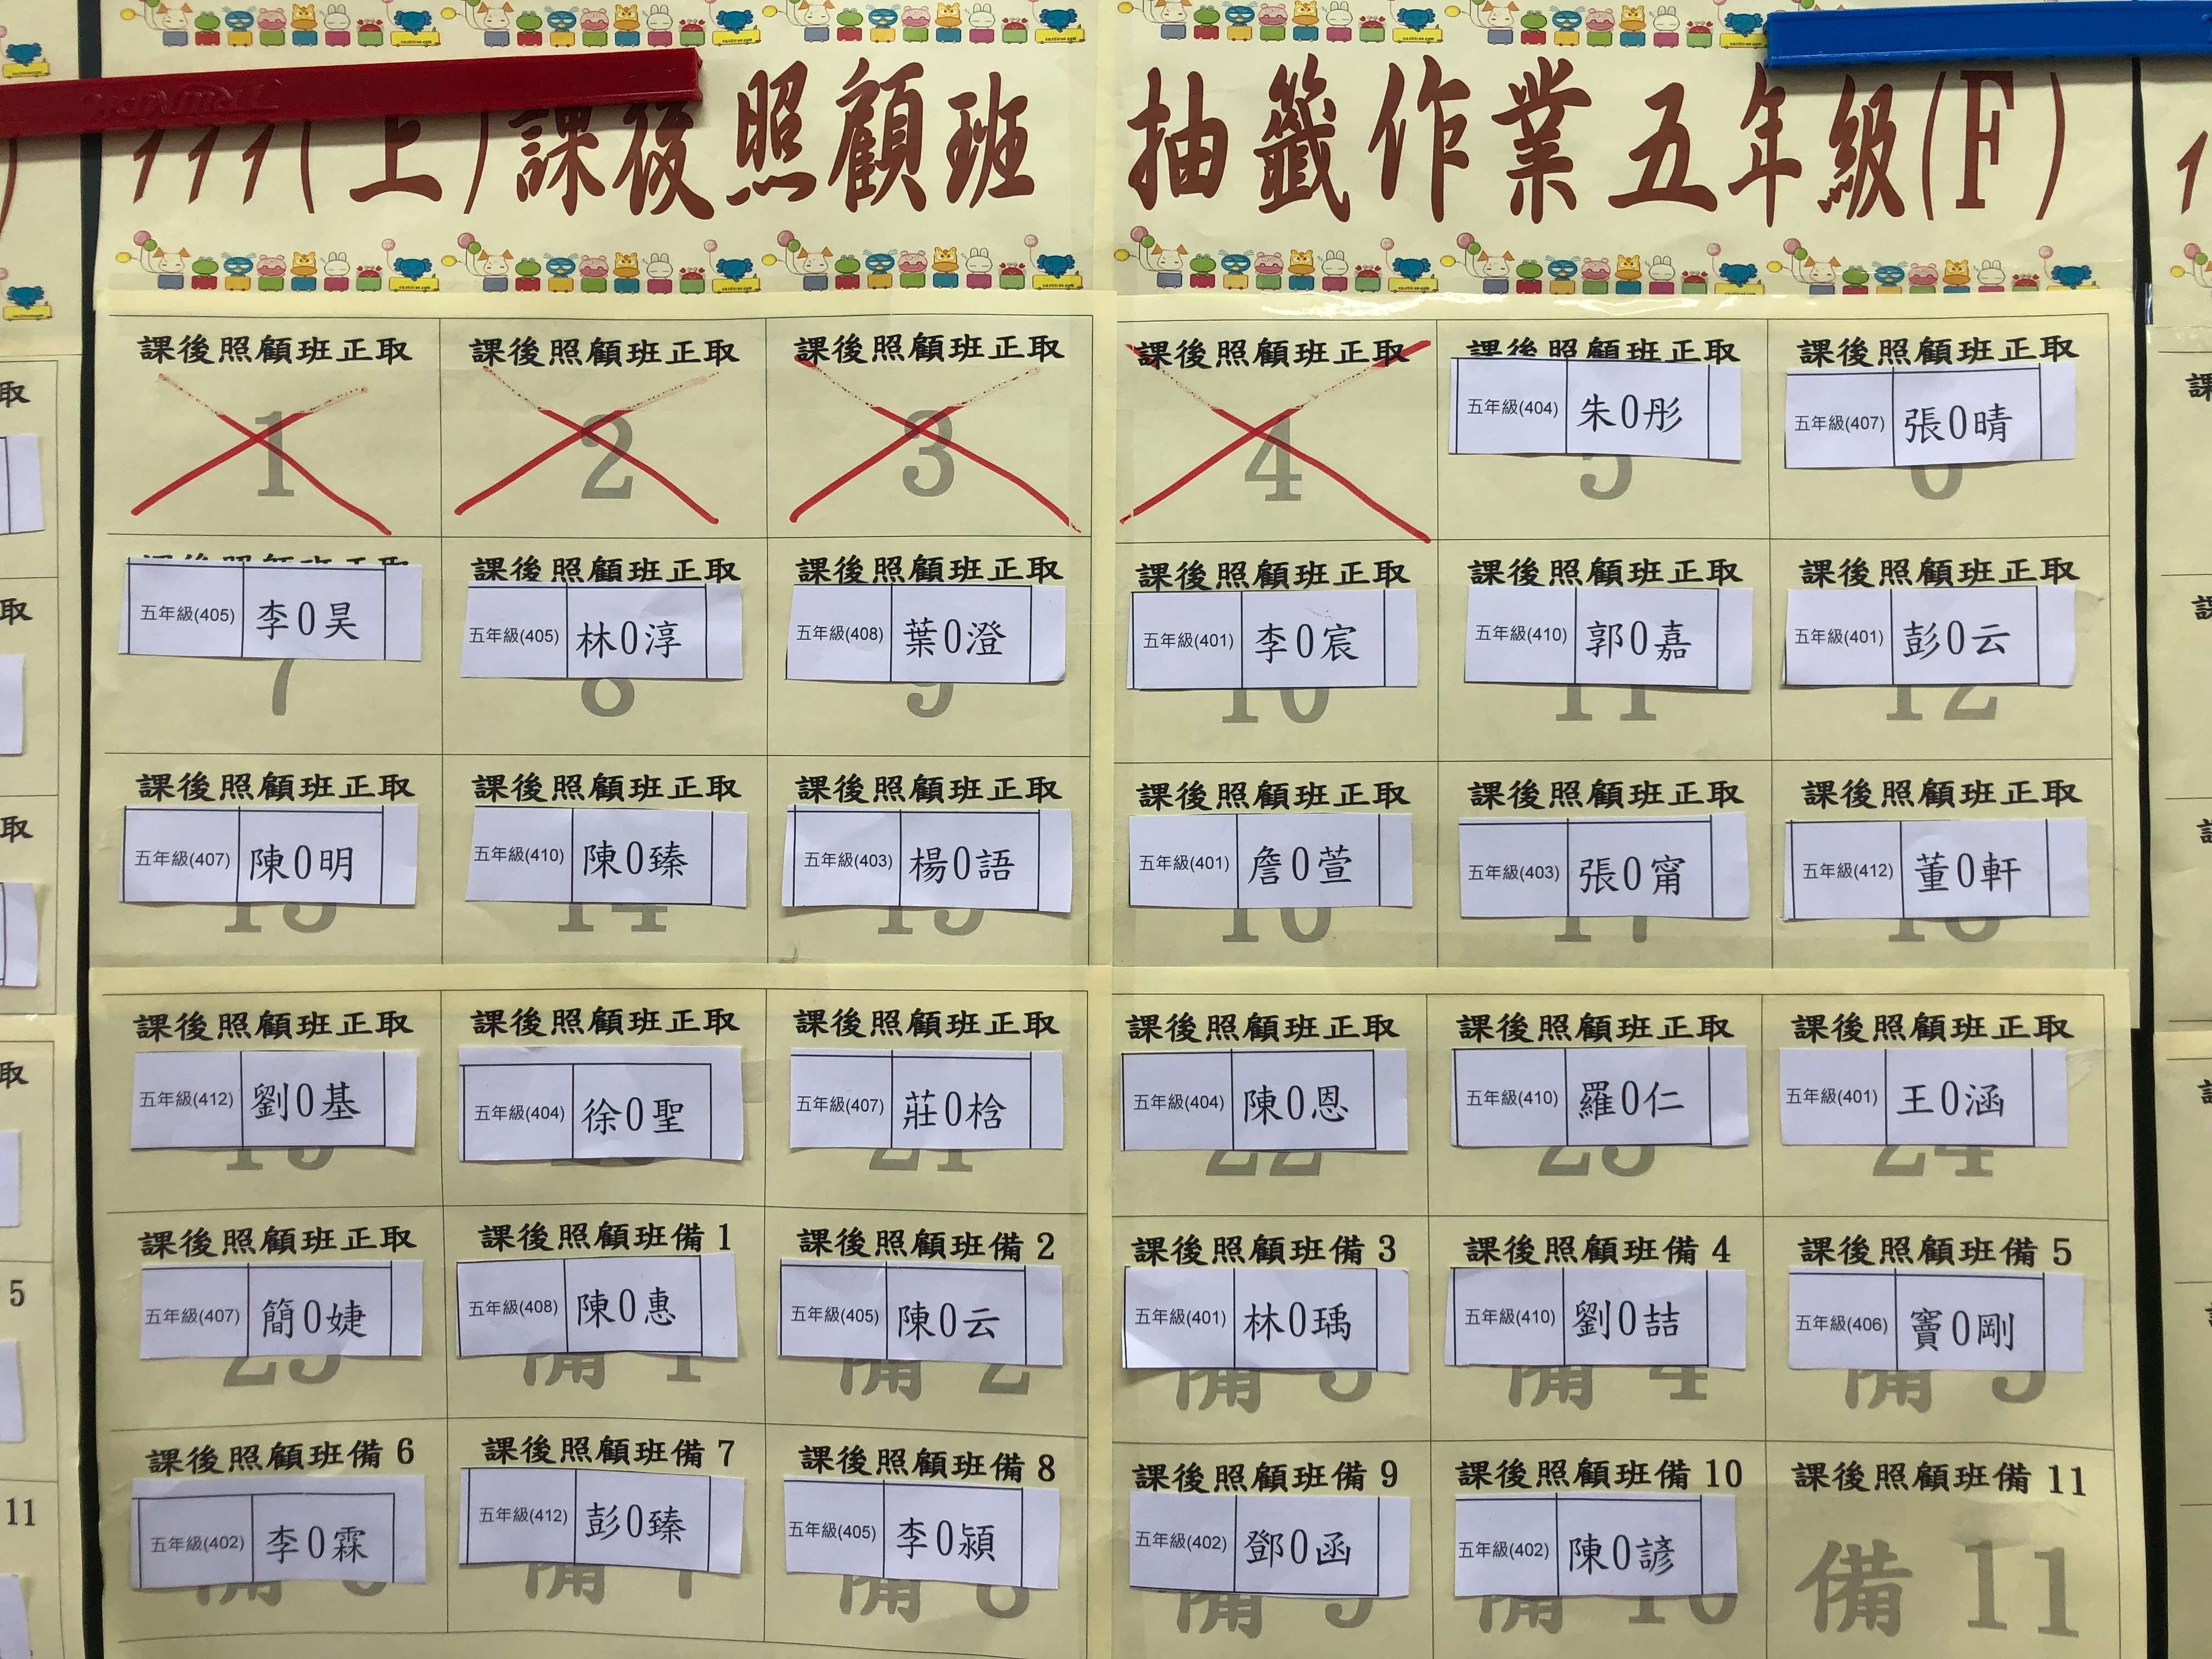 111(上)課後照顧班 抽籤作業五年級(F)
課後照顧班正取 課後照顧班正取 課後照顧班正取 課後照顧班正取 課後照顧班正取 課後照顧班正取
1 2 3 4 五年級(404) 朱0彤 五年級(407) 張0晴
5 6
課後照顧班正取 課後照顧班正取 課後照顧班正取 課後照顧班正取 課後照顧班正取 課後照顧班正取
五年級(405) 李0昊 五年級(405) 林0淳 五年級(408) 葉0澄 五年級(401) 李0宸 五年級(410) 郭0嘉 五年級(401) 彭0云
7 8 9 10 11 12
課後照顧班正取 課後照顧班正取 課後照顧班正取 課後照顧班正取 課後照顧班正取 課後照顧班正取
五年級(407) 陳0明 五年級(410) 陳0臻 五年級(403) 楊0語 五年級(401) 詹0萱 五年級(403) 張0甯 五年級(412) 董0軒
13 14 15 16 17 18
課後照顧班正取 課後照顧班正取 課後照顧班正取 課後照顧班正取 課後照顧班正取 課後照顧班正取
五年級(412) 劉0基 五年級(404) 徐0聖 五年級(407) 莊0梒 五年級(404) 陳0恩 五年級(410) 羅0仁 五年級(401) 王0涵
19 20 21 22 23 24
課後照顧班正取 課後照顧班備 1 課後照顧班備 2 課後照顧班備 3 課後照顧班備 4 課後照顧班備 5
五年級(407) 簡0婕 五年級(408) 陳0惠 五年級(405) 陳0云 五年級(401) 林0瑀 五年級(410) 劉0喆 五年級(406) 竇0剛
25 備 1 備 2 備 3 備 4 備 5
課後照顧班備 6 課後照顧班備 7 課後照顧班備 8 課後照顧班備 9 課後照顧班備 10 課後照顧班備 11
五年級(402) 李0霖 五年級(412) 彭0臻 五年級(405) 李0潁 五年級(402) 鄧0函 五年級(402) 陳0諺
備 6 備 7 備 8 備 9 備 10 備 11